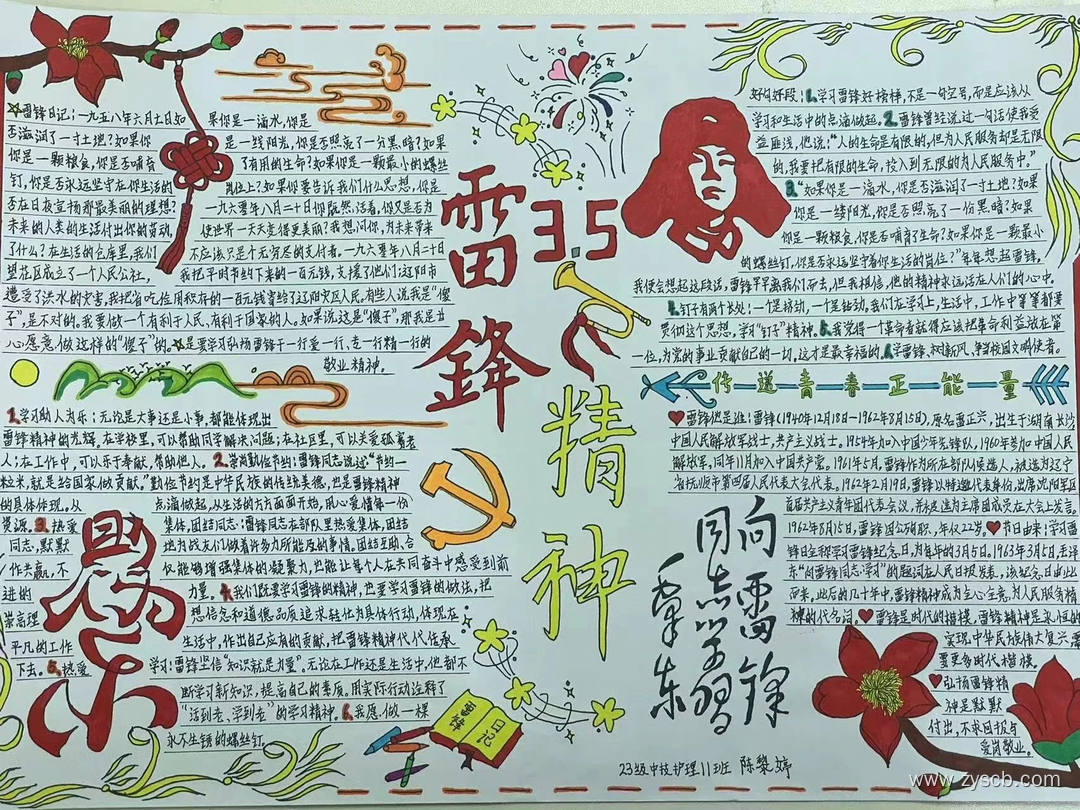 ☆雷锋日记:一九五八年六月七日如
果你是一滴水,你是
否滋润了一寸土地?如果你
是一线阳光,你是否照亮了一份黑暗?如果
你是一颗粮食,你是否哺育
了有用的生命?如果你是一颗最小的螺丝
钉,你是否永远坚守在你生活的
岗位上?如果你要告诉我们什么思想,你是
否在日夜宣扬那最美丽的理想?
一九六零年八月二十日你既然活着,你又是否为
未来的人类的生活付出你的劳动,
使世界一天天变得更美丽?我想问你,为未来带来
了什么?在生活的仓库里,我们
不应该只是个无穷尽的支付者.一九六零年八月二十日
望花区成立了一个人民公社,
我把平时节约下来的一百元钱,支援了他们;辽阳市
遭受了洪水的灾害,我把省吃俭用积存的一百元钱寄给了辽阳灾区人民.有些人说我是“傻
子”,是不对的.我要做一个有利于人民、有利于国家的人。如果说这是“傻子”,那我是甘
心愿意做这样的“傻子”的.☆是要学习弘扬雷锋干一行爱一行、专一行精一行的
敬业精神。
1.学习助人为乐:无论是大事还是小事,都能体现出
雷锋精神的光辉。在学校里,可以帮助同学解决问题;在社区里,可以关爱孤寡老
人;在工作中,可以乐于奉献,帮助他人。2.崇尚勤俭节约:雷锋同志说过“节约一
粒米,就是给国家做贡献。”勤俭节约是中华民族的传统美德,也是雷锋精神
的具体体现。从
点滴做起,从生活的方方面面开始,用心爱惜每一份
资源。3.热爱
集体,团结同志:雷锋同志在部队里热爱集体,团结
同志,默默
地为战友们做着许多力所能及的事情。团结互助、合
作共赢,不
仅能够增强集体的凝聚力,也能让每个人在共同奋斗中感受到前
进的
力量。4.我们既要学习雷锋的精神,也要学习雷锋的做法,把
崇高理
想信念和道德品质追求转化为具体行动,体现在
平凡的工作
生活中,作出自己应有的贡献,把雷锋精神代代传承
下去。5.热爱
学习:雷锋坚信“知识就是力量”。无论在工作还是生活中,他都不
断学习新知识,提高自己的素质。用实际行动诠释了
“活到老、学到老”的学习精神。6.我愿做一棵
永不生锈的螺丝钉
助人为乐
雷鋒
3.5
精神
雷锋
日记
向雷锋
同志学习
毛泽东
好句好段:1.学习雷锋好榜样,不是一句空号,而是应该从
学习和生活中的点滴做起。2.雷锋曾经说过一句话使我受
益匪浅,他说:“人的生命是有限的,但为人民服务却是无限
的,我要把有限的生命,投入到无限的为人民服务中。”
3.“如果你是一滴水,你是否滋润了一寸土地?如果
你是一缕阳光,你是否照亮了一份黑暗?如果
你是一颗粮食,你是否哺育了生命?如果你是一颗最小
的螺丝钉,你是否永远坚守着你生活的岗位?”每年想起雷锋,
我便会想起这段话,雷锋早早离我们而去,但我相信,他的精神永远活在人们的心中。
4.钉子有两个长处:一个是挤劲,一个是钻劲,我们在学习上,生活中,工作中常常都要
贯彻这个思想,学习“钉子”精神。5.我觉得一个革命者就得应该把革命利益放在第
一位,为党的事业贡献自己的一切,这才是最幸福的。6.学雷锋,树新风,争当校园文明使者。
传递青春正能量
♥雷锋他是谁:雷锋(1940年12月18日—1962年8月15日),原名雷正兴,出生于湖南长沙
中国人民解放军战士,共产主义战士。1954年加入中国少年先锋队,1960年参加中国人民
解放军,同年11月加入中国共产党。1961年5月,雷锋作为所在部队候选人,被选为辽宁
省抚顺市第四届人民代表大会代表。1962年2月19日,雷锋以特邀代表身份,出席沈阳军区
首届共产主义青年团代表会议,并被选为主席团成员在大会上发言。
1962年8月15日,雷锋因公殉职,年仅22岁。♥节日由来:学习雷
锋日全称学习雷锋纪念日,为每年的3月5日。1963年3月5日,毛泽
东“向雷锋同志学习”的题词在人民日报发表,该纪念日由此
而来,此后的几十年中,雷锋精神成为全心全意为人民服务精
神的代名词。♥雷锋是时代的楷模,雷锋精神是永恒的
实现中华民族伟大复兴需
要更多时代楷模。
♥弘扬雷锋精
神是默默
付出,不求回报与
爱岗敬业。
23级中技护理11班 陈黎婷
www.zyscb.com